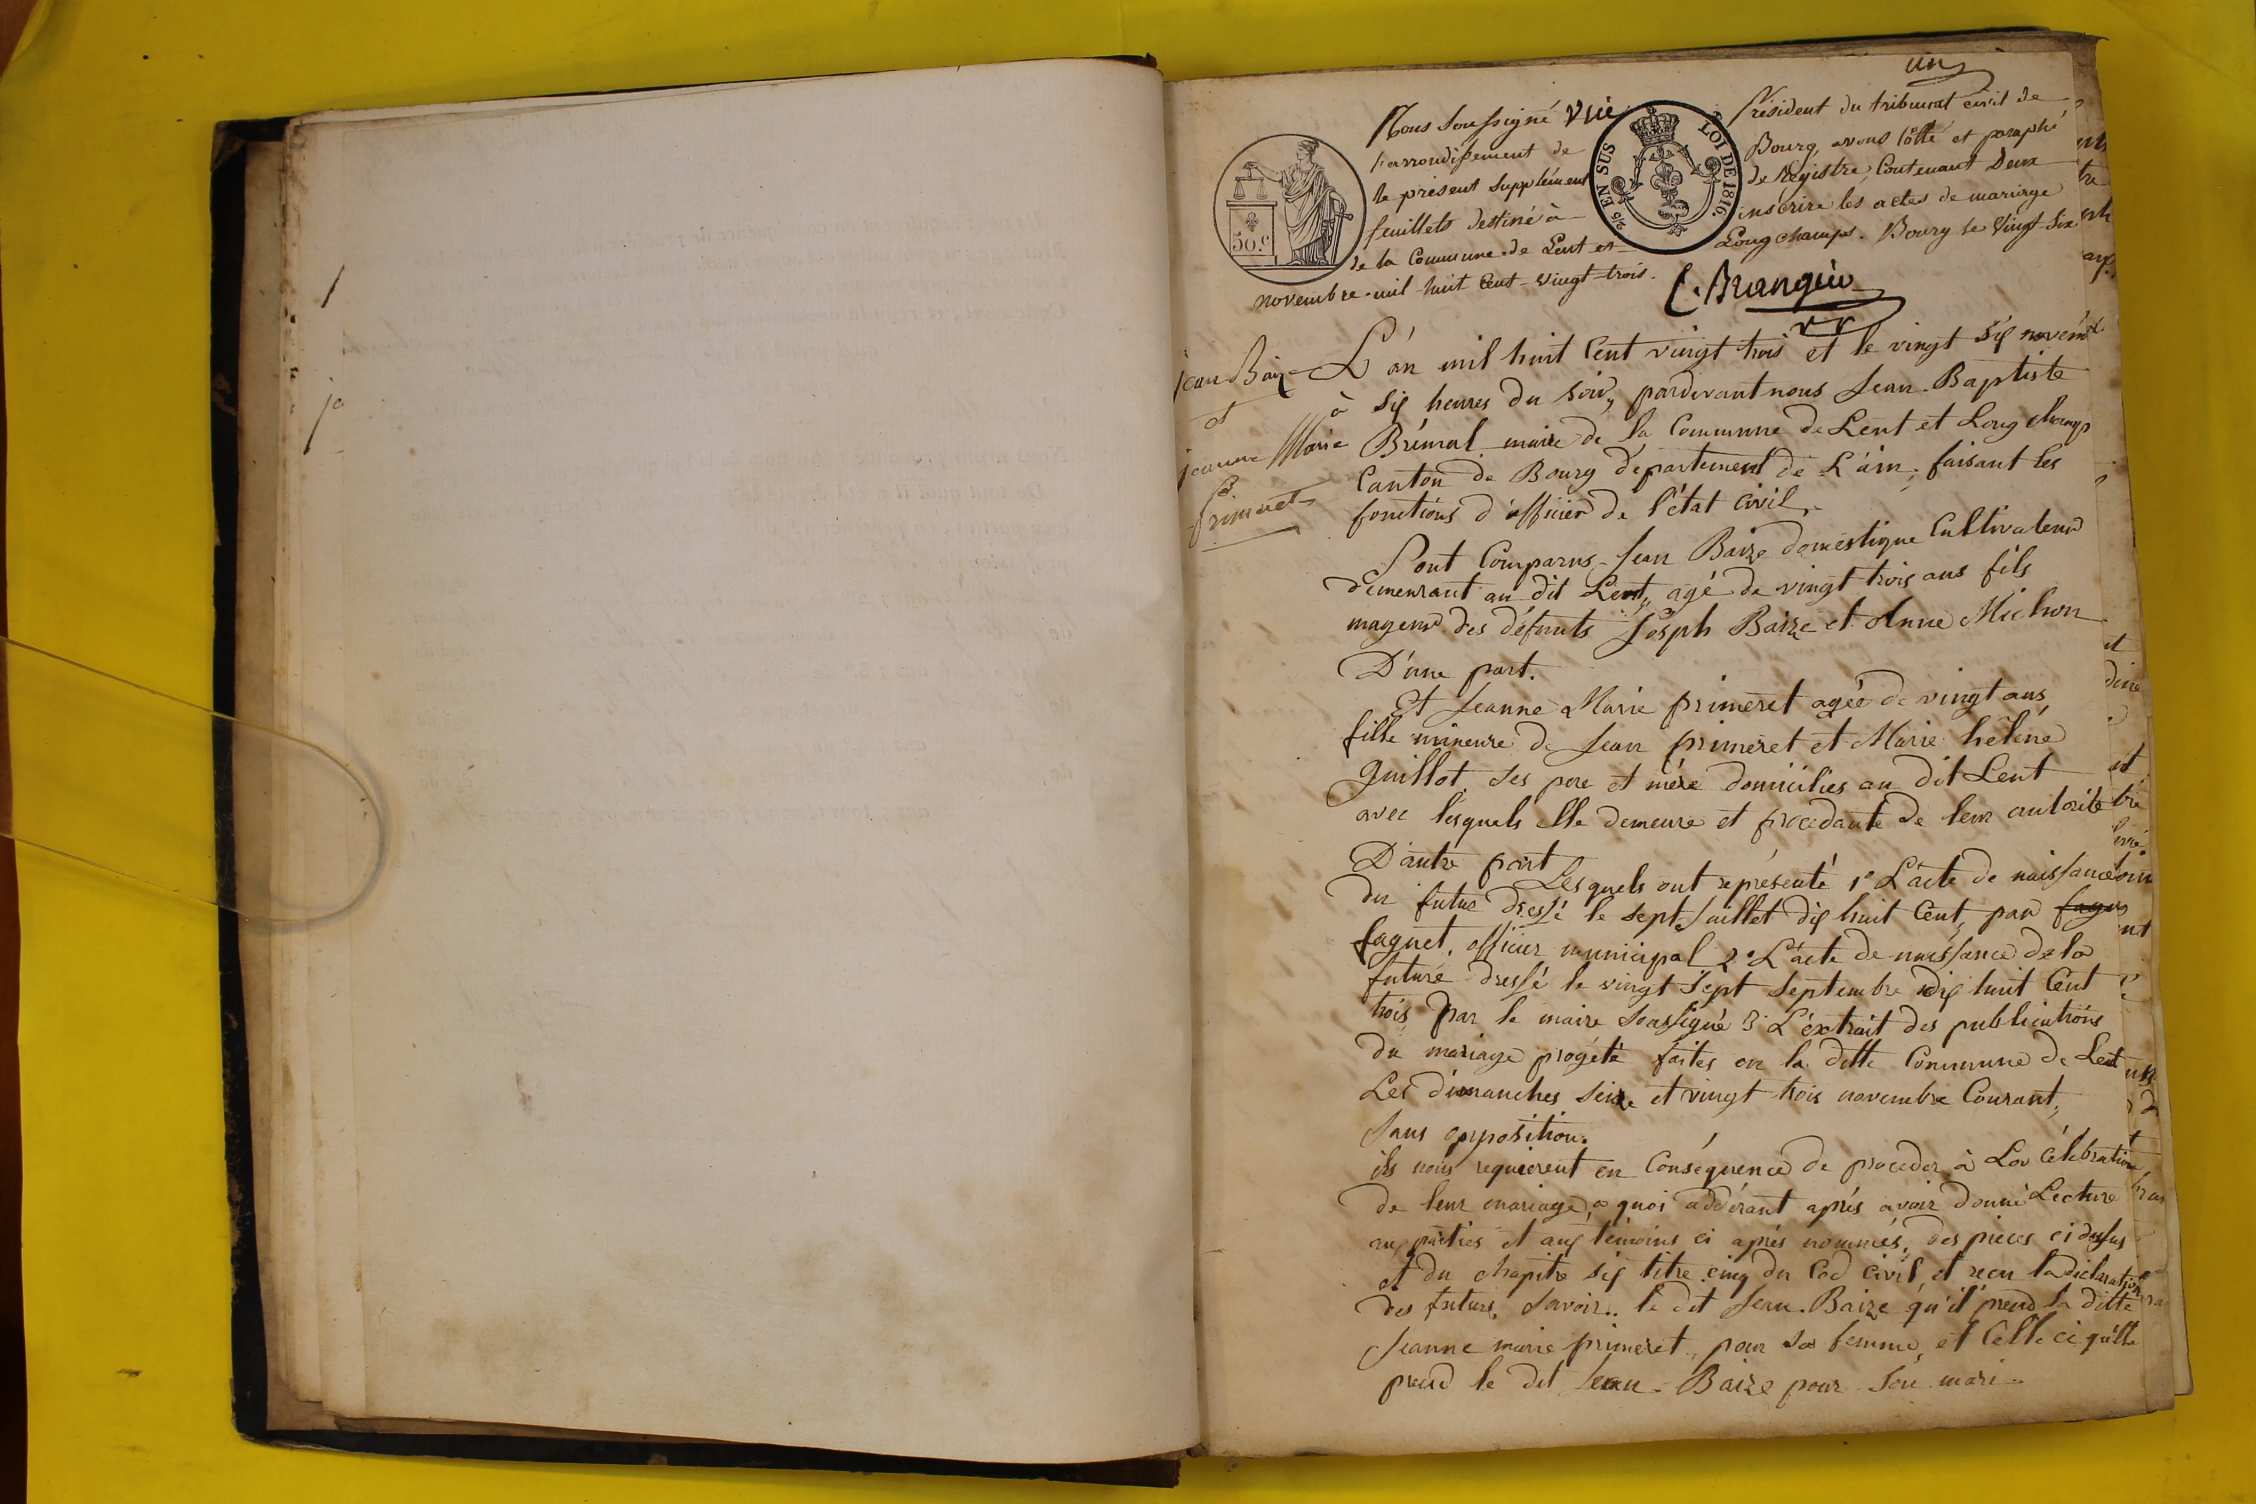 un
Nous soussigné Président du tribunal civil de
l'arrondissement de Bourg, avons cotté et paraphé
le présent supplément de Régistre, Contenant Deux
feuillets destiné à inscrire les actes de mariage
de la Commune de Lent et Longchamps. Bourg le Vingt Six
novembre mil huit Cent vingt-trois.
50.c
2/5 EN SUS LOI DE 1816.
jean Baize
et
jeanne Marie
primeret
L'an mil huit Cent vingt trois et le vingt Six novem
à Six heures du Soir, pardevant nous Jean-Baptiste
maire de la Commune de Lent et Long champ
Canton de Bourg département de L'ain, faisant les
fonctions d'officier de l'état Civil.
Sont Comparus Jean Baize domestique Cultivateur
demeurant au dit Lent, agé de vingt trois ans fils
mageur des défunts Joseph Baize et Anne Michon
D'une part.
Et Jeanne Marie primeret agée de vingt ans
fille mineure de Jean primeret et Marie héléne
Guillot, ses pere et mére domiciliés au dit Lent
avec lesquels elle demeure et procedante de leur autorité
D'autre part
Lesquels ont représenté 1° L'acte de naissance
du futur dressé le sept Juillet dix huit Cent, par
faguet, officier municipal 2° L'acte de naissance de la
future dressé le vingt Sept Septembre dix huit Cent
trois par le maire Soussigné 3° L'extrait des publications
du mariage progeté faites en la ditte Commune de Lent
Les dimanches Seize et vingt trois novembre Courant,
Sans opposition.
ils nous requierent en Conséquence de proceder à La Célébration
de leur mariage, a quoi addérant aprés avoir donné Lecture
aux parties et aux témoins ci aprés nommés, des pieces ci dessus
et du chapitre six titre cinq du Cod Civil, et reçu la déclaration
des futurs, Savoir.. le dit Jean Baize qu'il prend la ditte
Jeanne marie primeret, pour sa femme, et Celle ci qu'elle
prend le dit Jean Baize pour Son mari